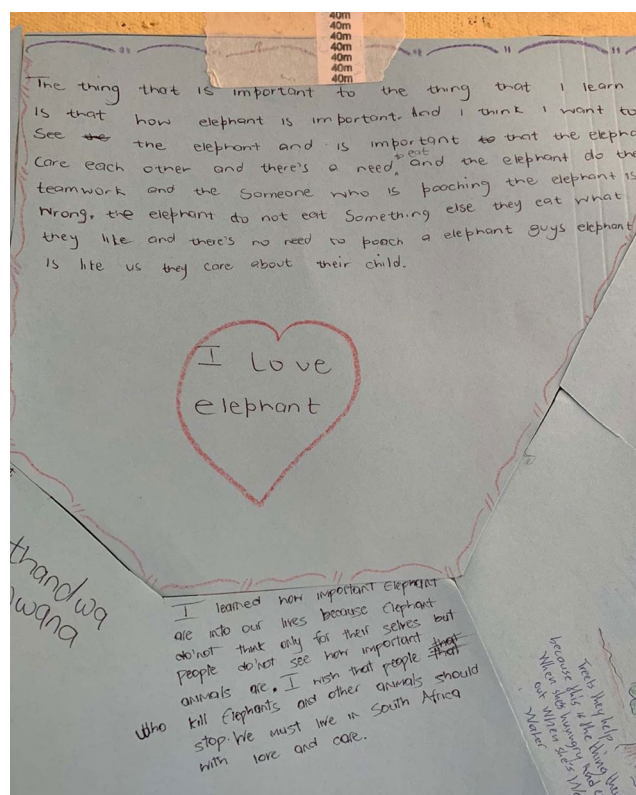 40m
40m
40m
40m
40m
40m
The thing that is important to the thing that I learn
Is that how elephant is important. And I think I want to
See the the elephant and is important to that the eleph
Care each other and there's a need to eat and the elephant do the
teamwork and the Someone who is pooching the elephant is
wrong. the elephant do not eat Something else they eat what
they like and there's no need to pooch a elephant guys elephant
Is like us they care about their child.
I Love
elephant
thandwa
wana
I learned how important Elephant
are into our lives because Elephant
do'not think only for their selves but
people do'not see how important that
animals are. I wish that people that
who kill Elephants and other animals should
stop. We must live in South Africa
with love and care.
Trees they help
because this is the thing the
When she's hungry and
out When she's
Water